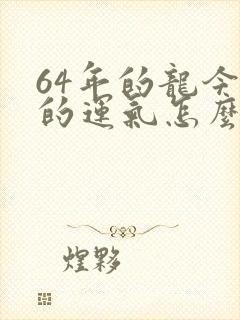 64年的龍今
的運氣怎麼
煌夥